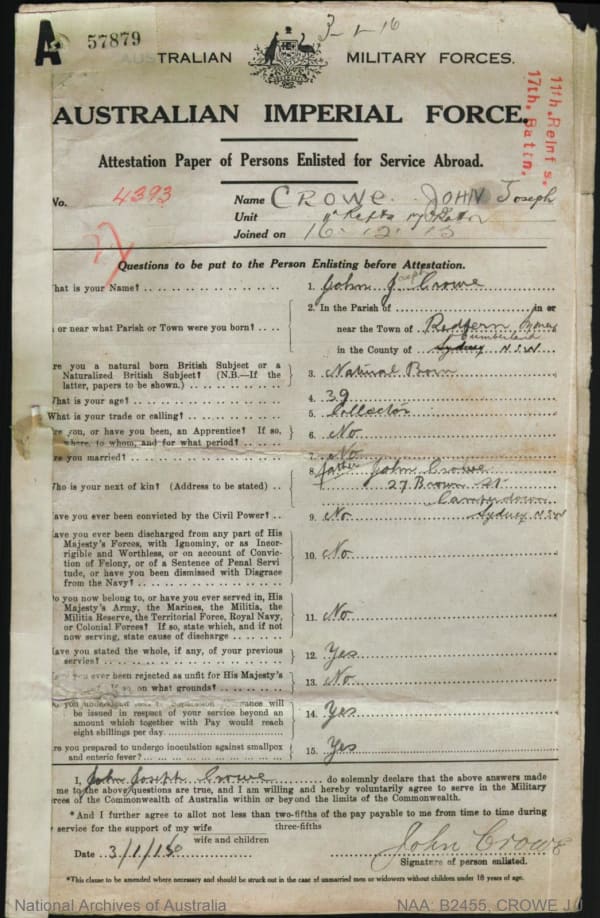 A 57879
3-1-16
AUSTRALIAN MILITARY FORCES.
AUSTRALIAN IMPERIAL FORCE.
11th. Reinf s.
17th. Battn.
Attestation Paper of Persons Enlisted for Service Abroad.
No. 4393
Name CROWE JOHN Joseph
Unit 11th Repts 17 Battn
Joined on 16.12.15
Questions to be put to the Person Enlisting before Attestation.
hat is your Name? 1. John Joseph Crowe
2. In the Parish of in or
n or near what Parish or Town were you born? near the Town of Redfern Sydney
Cumberland
in the County of Sydney N.S.W
re you a natural born British Subject or a
Naturalized British Subject? (N.B.—If the 3. Natural Born
latter, papers to be shown.)
hat is your age? 4. 39
What is your trade or calling? 5. Collector
re you, or have you been, an Apprentice? If so,
where, to whom, and for what period? 6. No
re you married? 7. No
8. father John Crowe
ho is your next of kin? (Address to be stated) 27 Brown St
Camperdown
Sydney N.S.W
ave you ever been convicted by the Civil Power? 9. No
ave you ever been discharged from any part of His
Majesty's Forces, with Ignominy, or as Incor-
rigible and Worthless, or on account of Convic-
tion of Felony, or of a Sentence of Penal Servi- 10. No
tude, or have you been dismissed with Disgrace
from the Navy?
o you now belong to, or have you ever served in, His
Majesty's Army, the Marines, the Militia, the
Militia Reserve, the Territorial Force, Royal Navy, 11. No
or Colonial Forces? If so, state which, and if not
now serving, state cause of discharge
ave you stated the whole, if any, of your previous
service? 12. Yes
ever been rejected as unfit for His Majesty's
If so, on what grounds? 13. No
you understand that no Separation Allowance will
be issued in respect of your service beyond an
amount which together with Pay would reach 14. Yes
eight shillings per day.
re you prepared to undergo inoculation against smallpox
and enteric fever? 15. Yes
I, John Joseph Crowe do solemnly declare that the above answers made
me to the above questions are true, and I am willing and hereby voluntarily agree to serve in the Military
rces of the Commonwealth of Australia within or beyond the limits of the Commonwealth.
*And I further agree to allot not less than two-fifths of the pay payable to me from time to time during
three-fifths
service for the support of my wife
wife and children
Date 3/1/16 John Crowe
Signature of person enlisted.
*This clause to be amended where necessary and should be struck out in the case of unmarried men or widowers without children under 18 years of age.
National Archives of Australia NAA: B2455, CROWE J J